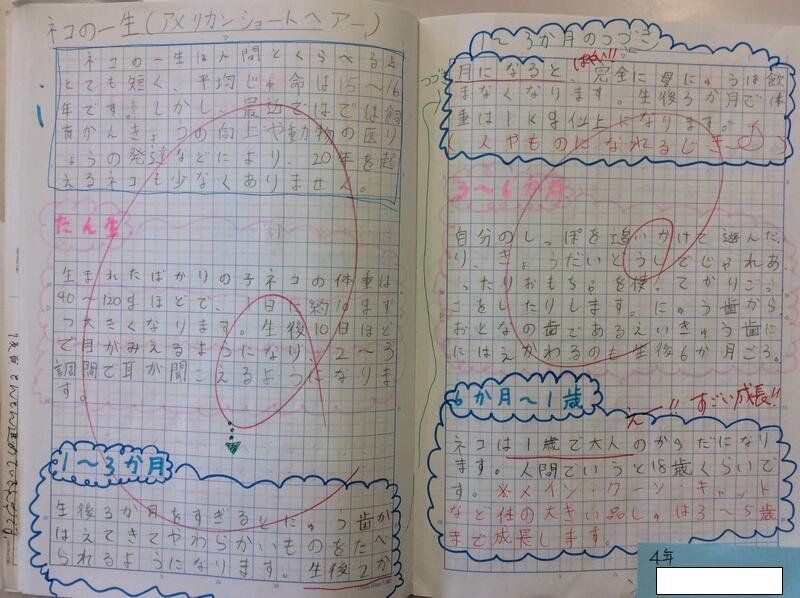 ネコの一生(アメリカンショートヘアー)
ネコの一生は人間とくらべると
とても短く、平均じゅ命は15〜16
年です。しかし、最近ではでは飼
育かんきょうの向上や動物の医り
ょうの発達などにより、20年を起
えるネコも少なくありません。
たん生
生まれたばかりの子ネコの体重は
90〜120gほどで、1日に約10gず
つ大きくなります。生後10日ほど
で目がみえるようになり、2〜3
調間で耳が聞こえるようになりま
す。
1〜3か月
生後3か月をすぎるとにゅう歯が
はえてきてやわらかいものをたべ
られるようになります。生後2か
1〜3か月のつづき
つづき
はやい!!
月になると、完全に母にゅうは飲
まなくなります。生後3か月で体
重は1kg以上になります。
(人やものになれるじき)
3〜6か月
自分のしっぽを追いかけて遊んだ
り、きょうだいどうしでじゃれあ
ったりおもちゃを使ってかりごっ
こをしたりします。にゅう歯から
おとなの歯であるえいきゅう歯に
にはえかわるのも生後6か月ごろ。
6か月〜1歳
え〜!! すごい成長!!
ネコは1歳で大人のからだになり
ます。人間でいうと18歳くらいで
す。※メイン・クーン・キャット
など体の大きい品しゅは3〜5歳
まで成長します。
4年